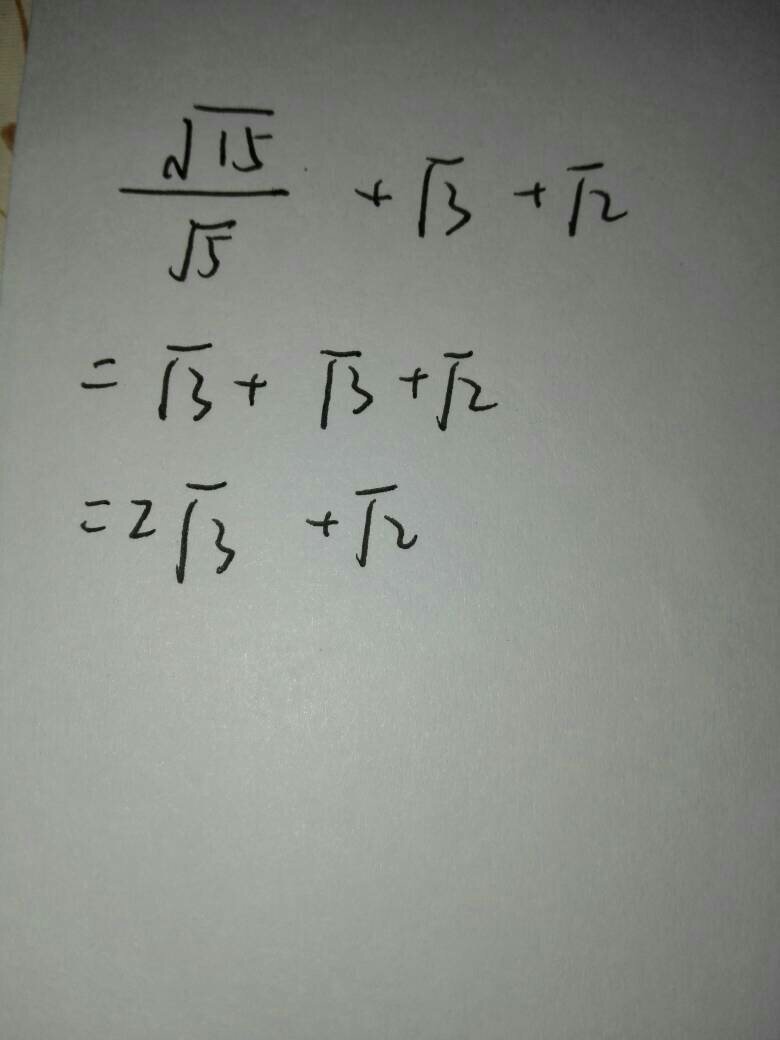 √15/√5 + √3 + √2
= √3 + √3 + √2
= 2√3 + √2